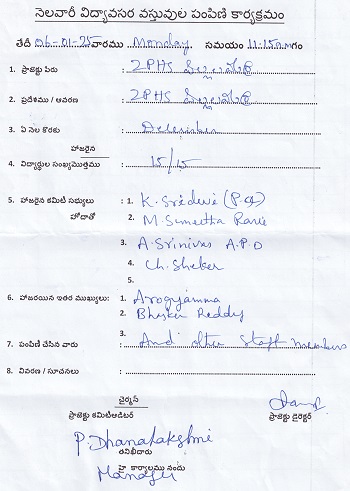 నెలవారీ విద్యావసర వస్తువుల పంపిణి కార్యక్రమం
తేదీ 06-01-25 వారము Monday. సమయం 11-15am గం
1. ప్రాజెక్టు పేరు : ZPHS
2. ప్రదేశము / ఆవరణ : ZPHS
3. ఏ నెల కొరకు : December
హాజరైన
4. విద్యార్థుల సంఖ్యమొత్తము : 15/15
5. హాజరైన కమిటి సభ్యులు : 1. K. Sridevi (P.d)
హోదాతో 2. M. Sumitha Rani
3. A. Srinivas A.P.D
4. Ch. Sheker
5.
6. హాజరయిన ఇతర ముఖ్యులు: 1. Arogyamma
2. Bhasker Reddy
3.
7. పంపిణి చేసిన వారు : And other Staff members
8. వివరణ / సూచనలు :
ఛైర్మన్
ప్రాజెక్టు కమిటిఆడిటర్ ప్రాజెక్టు డైరెక్టర్
P. Dhanalakshmi
తనిఖీదారు
హై కార్యాలము నందు
Manager